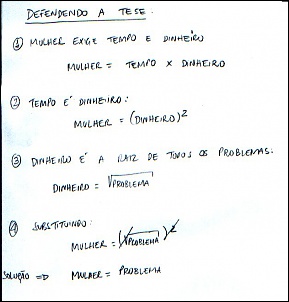 DEFENDENDO A TESE:
① MULHER EXIGE TEMPO E DINHEIRO
MULHER = TEMPO X DINHEIRO
② TEMPO E' DINHEIRO:
MULHER = (DINHEIRO)²
③ DINHEIRO E' A RAIZ DE TODOS OS PROBLEMAS:
DINHEIRO = √PROBLEMA
④ SUBSTITUINDO:
MULHER = (√PROBLEMA)²
SOLUÇÃO => MULHER = PROBLEMA